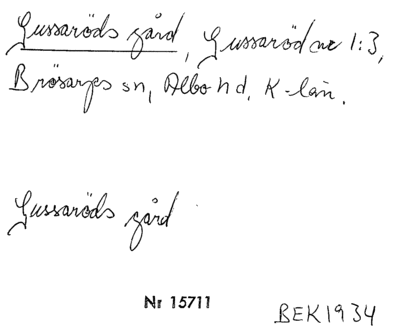 Gussaröds gård, Gussaröd nr 1:3,
Brösarps sn, Albo hd, K-län.
Gussaröds gård
Nr 15711
BEK1934